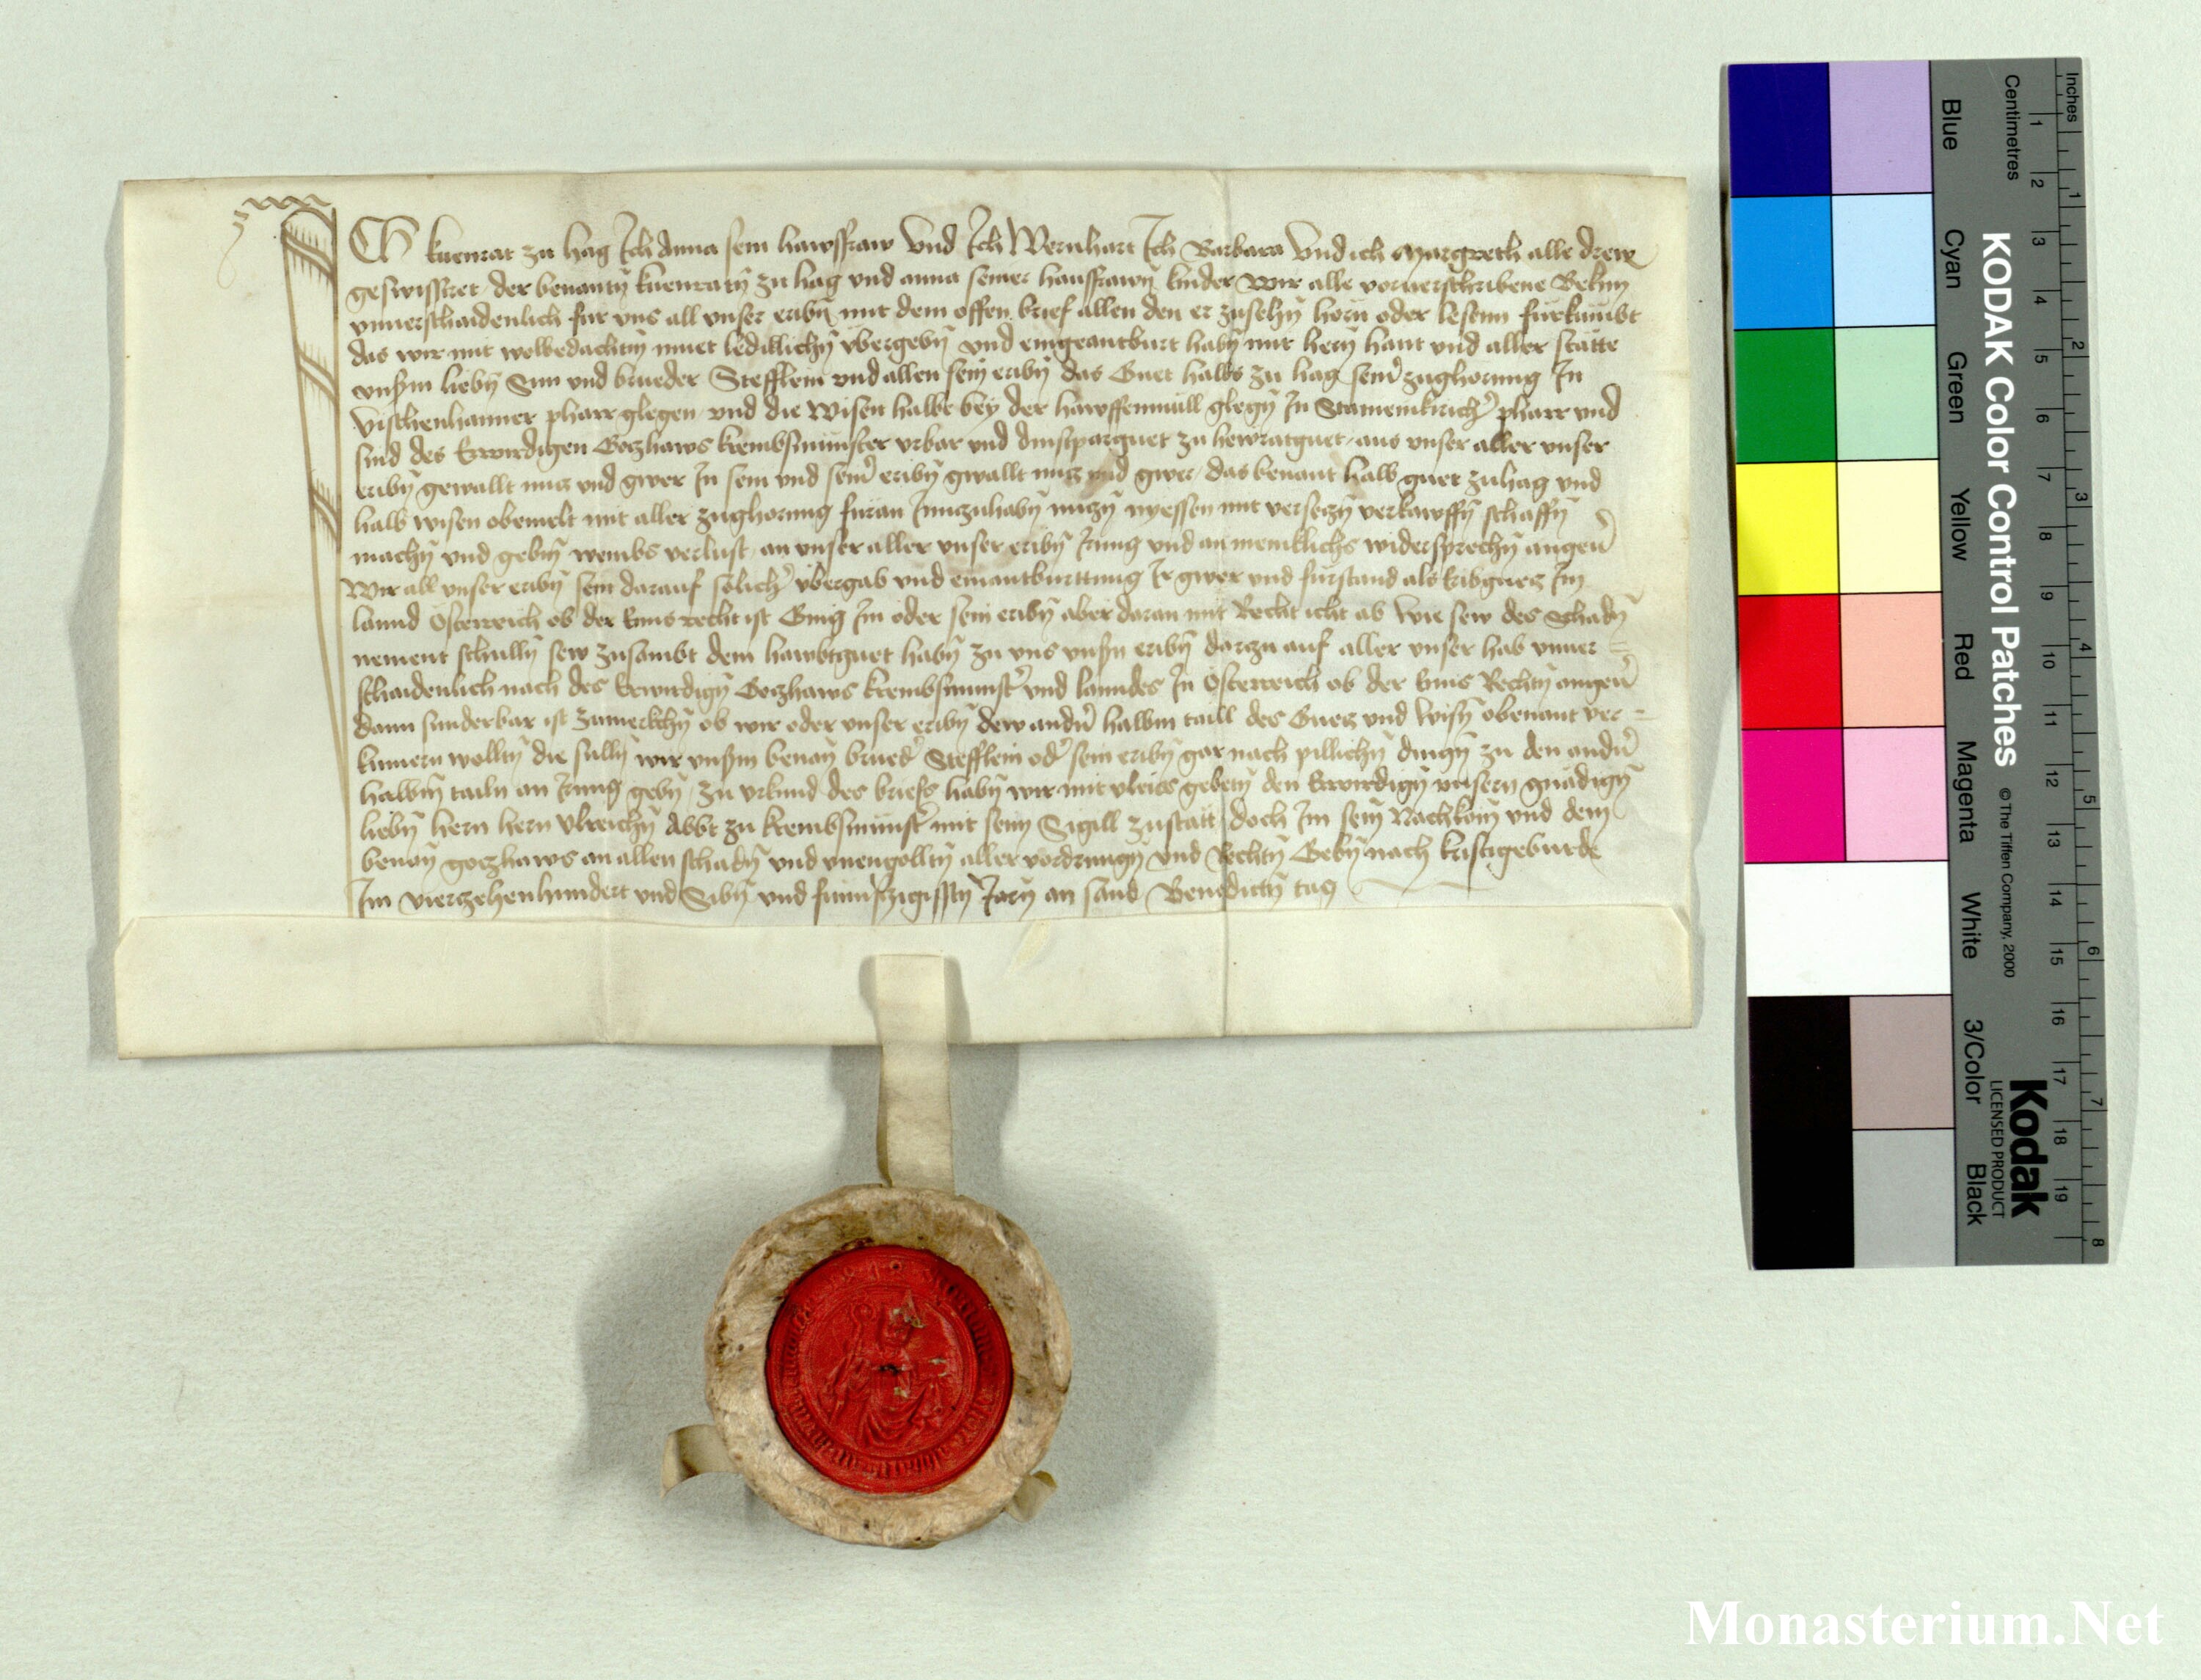 ICh kuenrat zu hag Ich Anna sein hawsfraw Vnd Ich Wernhart Ich Barbara Vnd ich Margreth alle drew
geswistret der benantn̄ kuenratn̄ zu hag vnd anna seiner hausfrawn̄ kinder Wir alle vorverschribene Bekn̄
vnuerschaidenlich fur vns all vnser eribn̄ mit dem offen brief allen den er zusehn̄ horn̄ oder lesenn furkumbt
das wir mit wolbedachtm̄ muet ledillichn̄ vbergebn̄ vnd eingeantburt habn̄ mit hern̄ hant vnd aller statte
vnsm̄ liebn̄ Sun vnd brueder Stefflein vnd allen sein̄ eribn̄ das Guet halbs zu hag sein̄ zughorung In
Vischenhanner pharr glegen vnd die Wisen halbe bey der hawffenmull glegn̄ In Stameinkirich̄ pharr vnd
sind des Erwirdigen Gotzhaws krembsmunster vrbar vnd dinstpargue​t zu hewratguet aus vnser aller vnser
eribn̄ gewallt nutz vnd gwer In sein vnd sein̄ eribn̄ gwallt nutz vnd gwer das benant halb guet zu hag vnd
halb wisen obemelt mit aller zughorung furan Innzuhabn̄ nutzn̄ nyessen mit versetzn̄ verkawffn̄ schaffn̄
machn̄ vnd gebm̄ wembs verlust an vnser aller vnser eribn̄ Irrung vnd an meniklichs widersprechn̄ angeu̅
Wir all vnser eribn̄ sein darauf solich̄ vbergab vnd einantburttung Ir gwer vnd furstand als Erbguetz Im
lannd Osterreich ob der Enns recht ist Gieng In oder sein eribn̄ aber daran mit Recht icht ab Wie sew des Schadn̄
nement schulln̄ sew zusambt dem hawbtguet habn̄ zu vns vnsn̄ eribn̄ darzu auf aller vnser hab vnuer
schaidenlich nach des Erwirdign̄ Gotzhaws krembsmunst̄ vnd lanndes In Osterreich ob der Enns Rechtn̄ angeu̅
dann sunderbar ist zumerkchn̄ ob wir oder vnser eribn̄ dew andn̄ halbm taill des Guetz vnd Wisn̄ obenant ver
kumern wolltn̄ die sulln̄ wir vnsm̄ benan̄ brued̄ Stefflein od̄ sein eribn̄ gar nach pillichn̄ dingn̄ zu den andn̄
halbm̄ tailn an Irrung gebn̄ Zu vrkund des briefs habn̄ wir mit vleiss gebetn̄ den Erwirdign̄ vnsern gnädign̄
liebn̄ hern hern Vlreichn̄ Abbt zu krembsmunst̄ mit seim Sigill zustatt doch Im sein̄ Nachkom̄ vnd dem
benan̄ gotzhaws an allen schadn̄ vnd vnengolltn̄ aller vordrungn̄ vnd Rechtn̄ Gebn̄ nach kristigeburde
Im vierzehenhundert vnd Sibn̄ vnd funfzigisstn̄ Jarn̄ an sand Benedictn̄ tag
KODAK Color Control Patches
© The Tiffen Company, 2000
Kodak
LICENSED PRODUCT
Inches
1 2 3 4 5 6 7 8
Centimetres
1 2 3 4 5 6 7 8 9 10 11 12 13 14 15 16 17 18 19
Blue
Cyan
Green
Yellow
Red
Magenta
White
3/Color
Black
Monasterium.Net